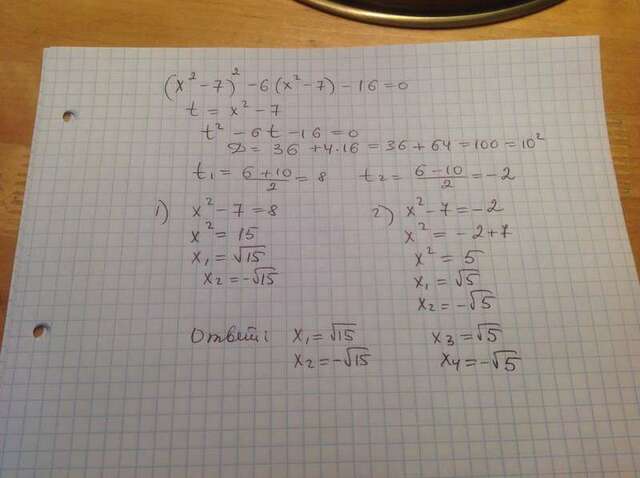 (x² - 7)² - 6(x² - 7) - 16 = 0
t = x² - 7
t² - 6t - 16 = 0
D = 36 + 4·16 = 36 + 64 = 100 = 10²
t₁ = (6 + 10)/2 = 8 t₂ = (6 - 10)/2 = -2
1) x² - 7 = 8
x² = 15
x₁ = √15
x₂ = -√15
2) x² - 7 = -2
x² = -2 + 7
x² = 5
x₁ = √5
x₂ = -√5
Ответ: x₁ = √15 x₃ = √5
x₂ = -√15 x₄ = -√5